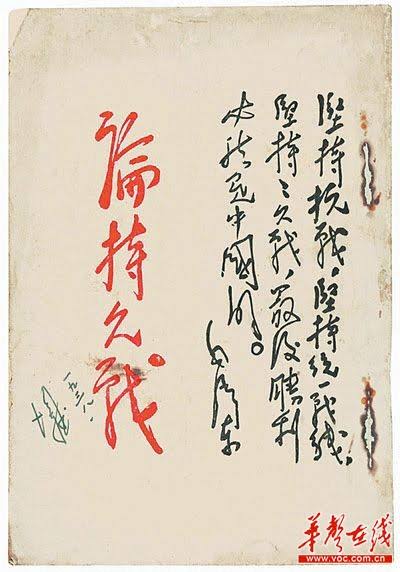 堅持抗戰,堅持統一戰線,
堅持〻久戰,最後勝利
必然是中國的。
毛澤東
論持久戰
一九三八.
華聲在线
www.voc.com.cn